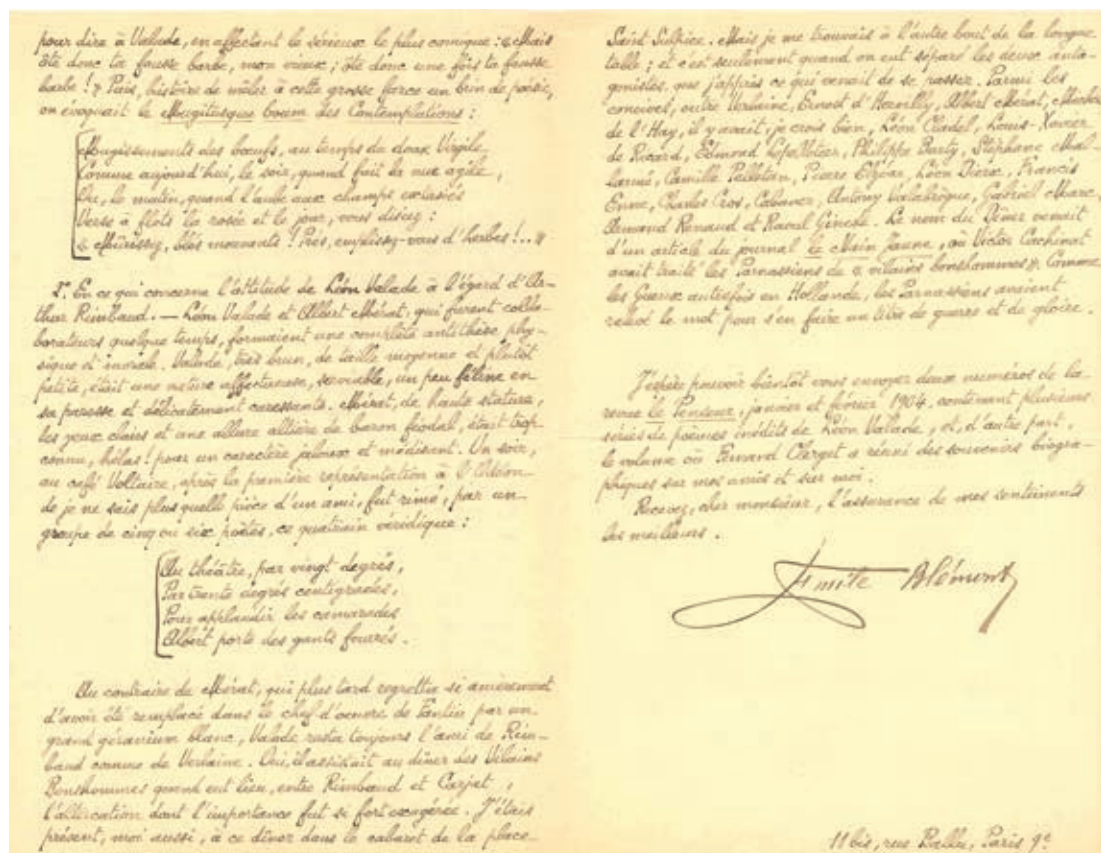 pour dire à Valade, en affectant le sérieux le plus comique : « Mais
ôte donc ta fausse barbe, mon vieux ; ôte donc une fois ta fausse
barbe ! » Puis, histoire de mêler à cette grosse farce un brin de poésie,
on évoquait le Mugitusque boum des Contemplations :
Mugissements des bœufs, au temps du doux Virgile
Comme aujourd'hui, le soir, quand fuit la nue agile,
Ou, le matin, quand l'aube aux champs extasiés
Verse à flots la rosée et le jour, vous disiez :
« Mûrissez, blés mouvants ! Prés, emplissez-vous d'herbes !.. »
2° En ce qui concerne l'attitude de Léon Valade à l'égard d'Ar-
thur Rimbaud. — Léon Valade et Albert Mérat, qui furent colla-
borateurs quelque temps, formaient une complète antithèse phy-
sique et morale. Valade, très brun, de taille moyenne et plutôt
petite, était une nature affectueuse, serviable, un peu féline en
sa paresse et délicatement caressante. Mérat, de haute stature,
les yeux clairs et une allure altière de baron féodal, était trop
connu, hélas ! pour un caractère jaloux et médisant. Un soir,
au café Voltaire, après la première représentation à l'Odéon
de je ne sais plus quelle pièce d'un ami, fut rimé, par un
groupe de cinq ou six poètes, ce quatrain véridique :
Au théâtre, par vingt degrés,
Par trente degrés centigrades,
Pour applaudir les camarades
Albert porte des gants fourrés.
Au contraire de Mérat, qui plus tard regretta si amèrement
d'avoir été remplacé dans le chef d'œuvre de Fantin par un
grand géranium blanc, Valade resta toujours l'ami de Rim-
baud comme de Verlaine. Oui, il assistait au dîner des Vilains
Bonshommes quand eut lieu, entre Rimbaud et Carjat,
l'altercation dont l'importance fut si fort exagérée. J'étais
présent, moi aussi, à ce dîner dans le cabaret de la place
Saint Sulpice. Mais je me trouvais à l'autre bout de la longue
table ; et c'est seulement quand on eut séparé les deux anta-
gonistes, que j'appris ce qui venait de se passer. Parmi les
convives, outre Verlaine, Ernest d'Hervilly, Albert Mérat, Michel
de l'Hay, il y avait, je crois bien, Léon Cladel, Louis-Xavier
de Ricard, Edmond Lepelletier, Philippe Burty, Stéphane Mal-
larmé, Camille Pelletan, Pierre Elzéar, Léon Dierx, Francis
Enne, Charles Cros, Cabaner, Antony Valabrègue, Gabriel Marc,
Armand Renaud et Raoul Gineste. Le nom du Dîner venait
d'un article du journal le Nain Jaune, où Victor Cochinat
avait traité les Parnassiens de « vilains bonshommes ». Comme
les Gueux autrefois en Hollande, les Parnassiens avaient
relevé le mot pour s'en faire un titre de guerre et de gloire.
J'espère pouvoir bientôt vous envoyer deux numéros de la
revue le Penseur, janvier et février 1904, contenant plusieurs
séries de poèmes inédits de Léon Valade, et, d'autre part,
le volume où Fernand Clerget a réuni des souvenirs biogra-
phiques sur mes amis et sur moi.
Recevez, cher monsieur, l'assurance de mes sentiments
les meilleurs.
Emile Blémont
11 bis, rue Ballu, Paris 9e